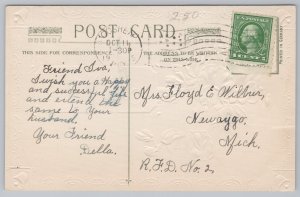 2.50
POST CARD
THIS SIDE FOR CORRESPONDENCE
THE ADDRESS TO BE WRITTEN
ON THIS SIDE
OCT 11
-30P
Friend Iva,
I wish you a Happy
and successful life
and extend the
same to your
husband.
Your Friend
Della.
Mrs. Floyd E. Wilbur,
Newaygo,
Mich.
R.F.D. No. 2.